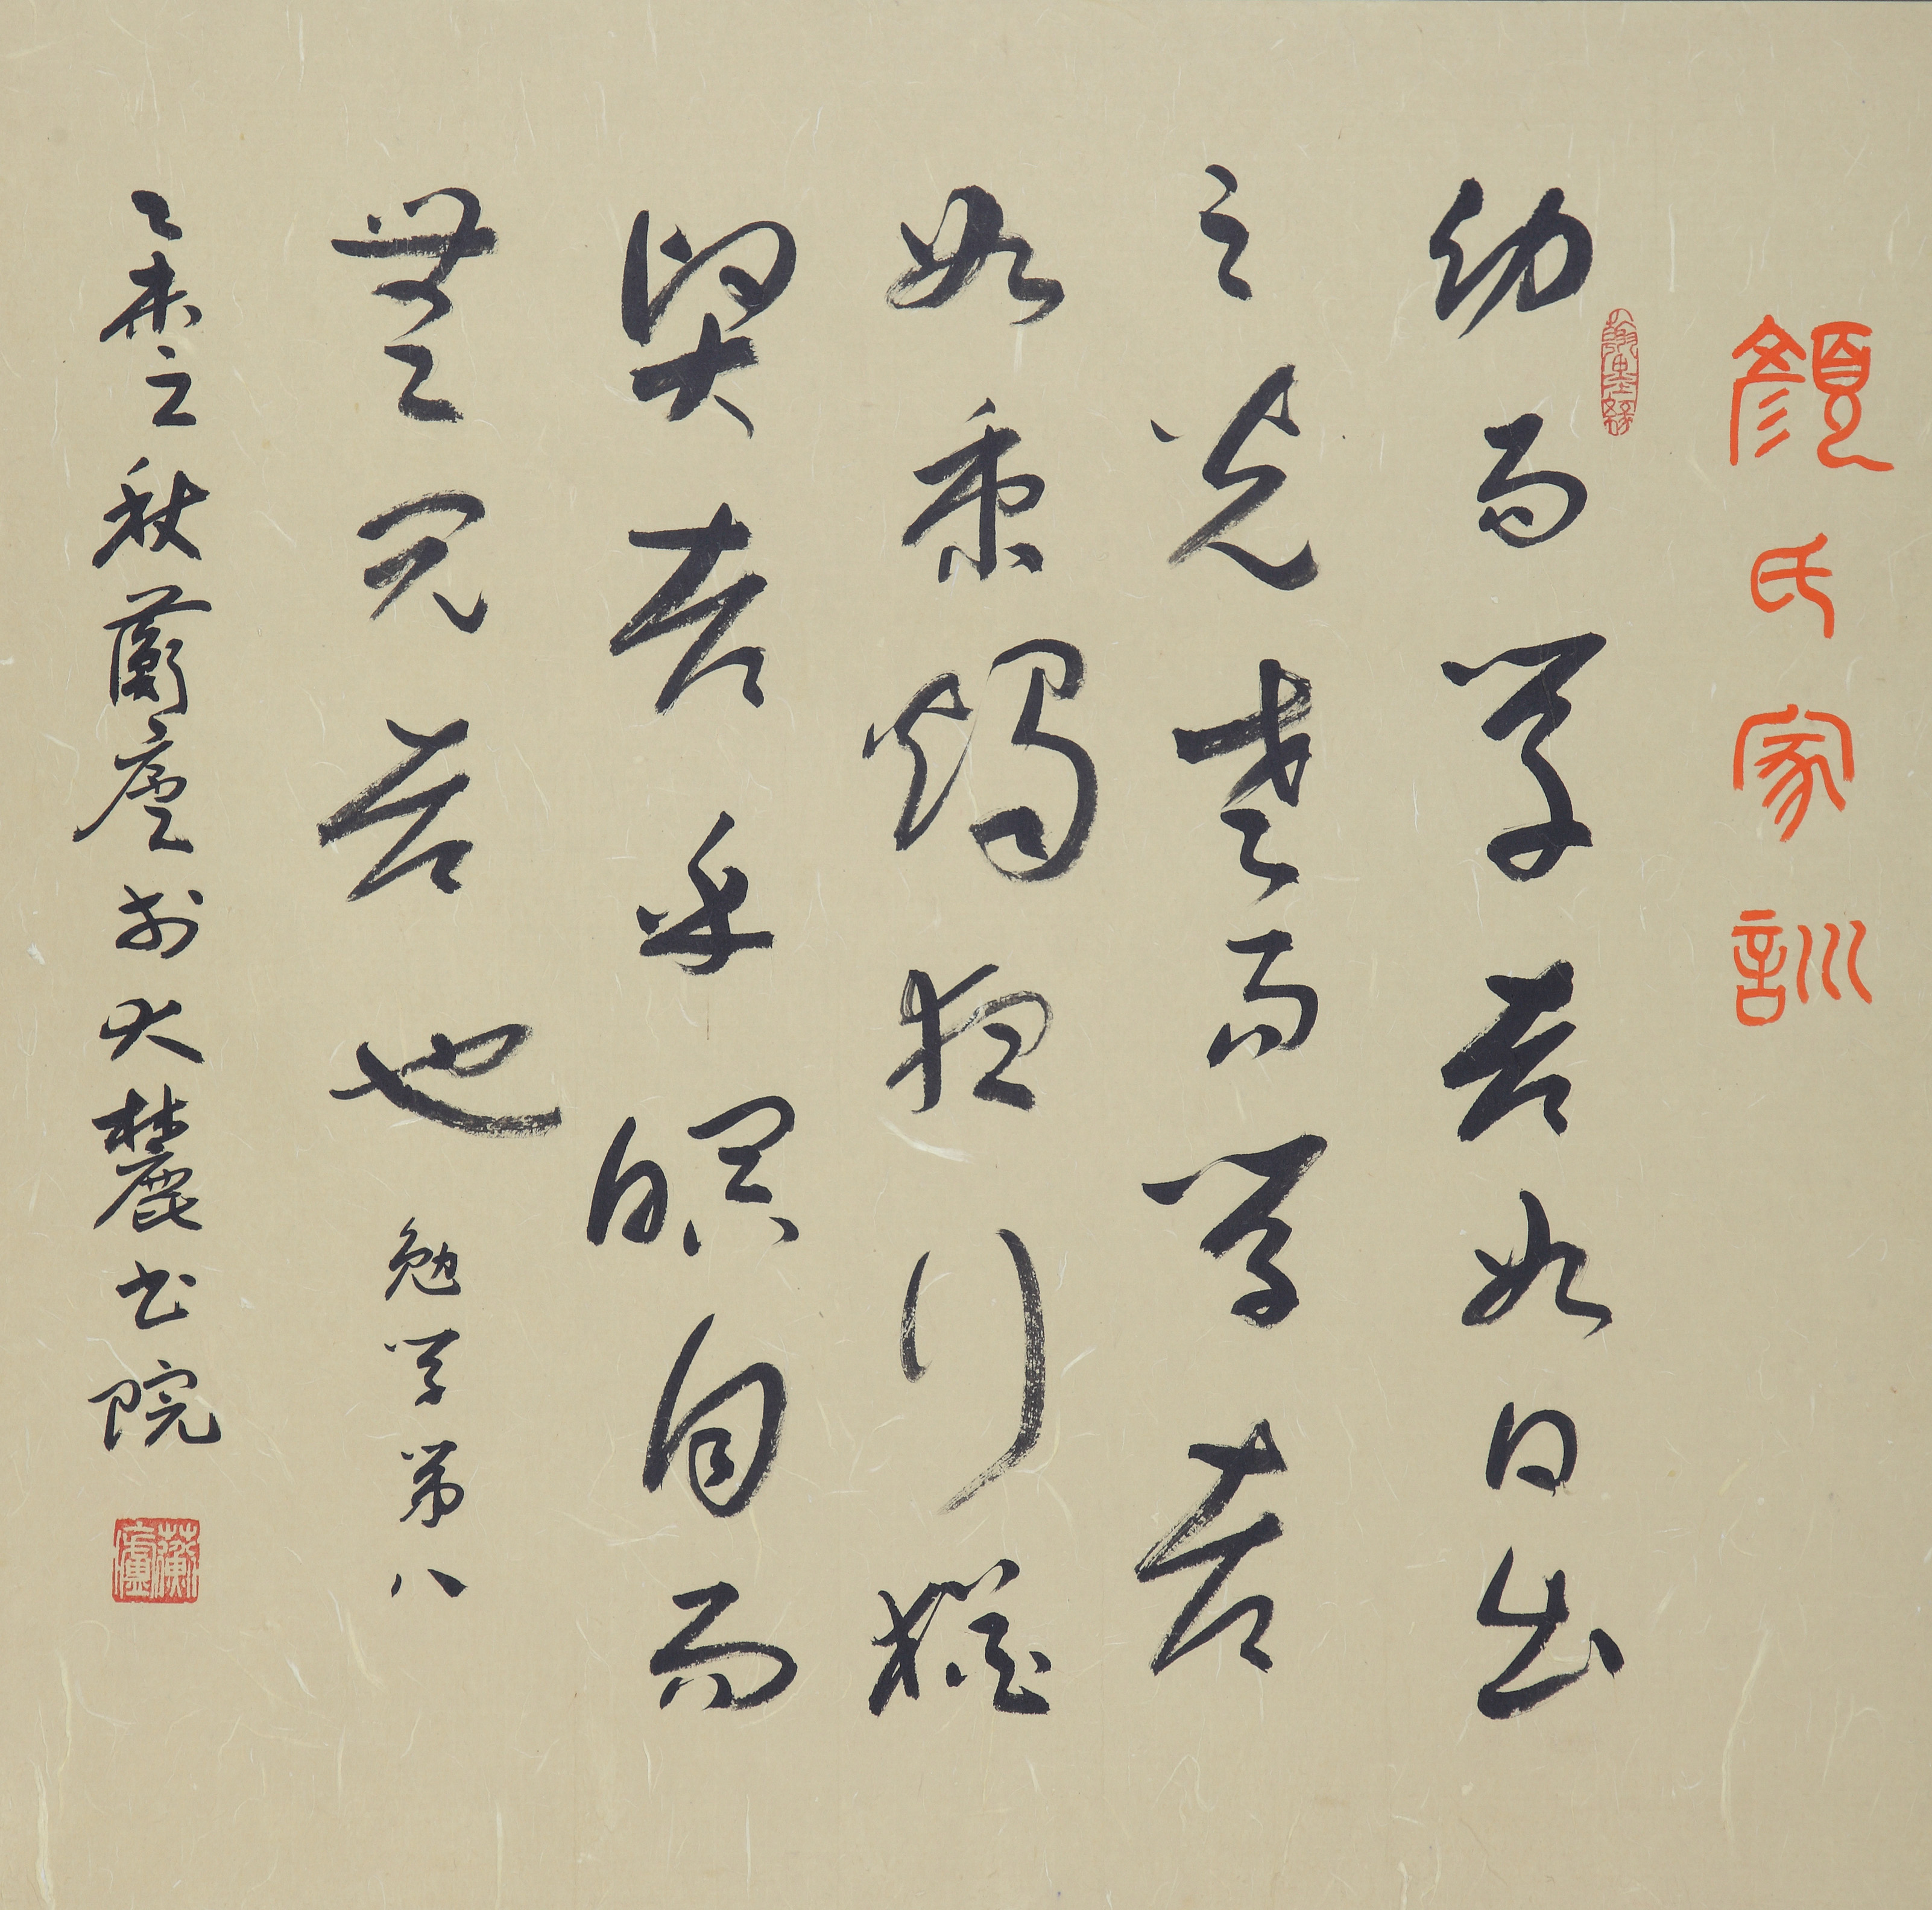 顏氏家訓
翰墨緣
幼而學者如日出
之光老而學者
如秉燭夜行猶
賢者乎瞑目而
無見者也
勉學第八
乙未之秋蘅廬於大麓書院
蘅廬